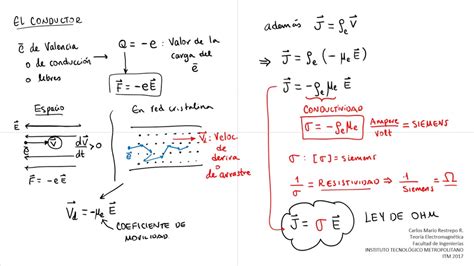 EL CONDUCTOR
ē de Valencia
o de conducción
o libres
Q = -e : Valor de la
carga del
ē
F⃗ = -e E⃗
Espacio
E⃗
ē v⃗ dv⃗/dt > 0
F⃗ = -e E⃗
En red cristalina
E⃗
V⃗d: Veloc.
de
deriva
o de arrastre
V⃗d = -μe E⃗
COEFICIENTE DE
MOVILIDAD
además J⃗ = ρe V⃗
⇒ J⃗ = ρe (-μe E⃗)
J⃗ = -ρe μe E⃗
CONDUCTIVIDAD
σ = -ρe μe Ampere/Volt = SIEMENS
σ : [σ] = siemens
1/σ = RESISTIVIDAD ⇒ 1/Siemens = Ω
J⃗ = σ E⃗ LEY DE OHM
Carlos Mario Restrepo R.
Teoría Electromagnética
Facultad de Ingenierías
INSTITUTO TECNOLÓGICO METROPOLITANO
ITM 2017